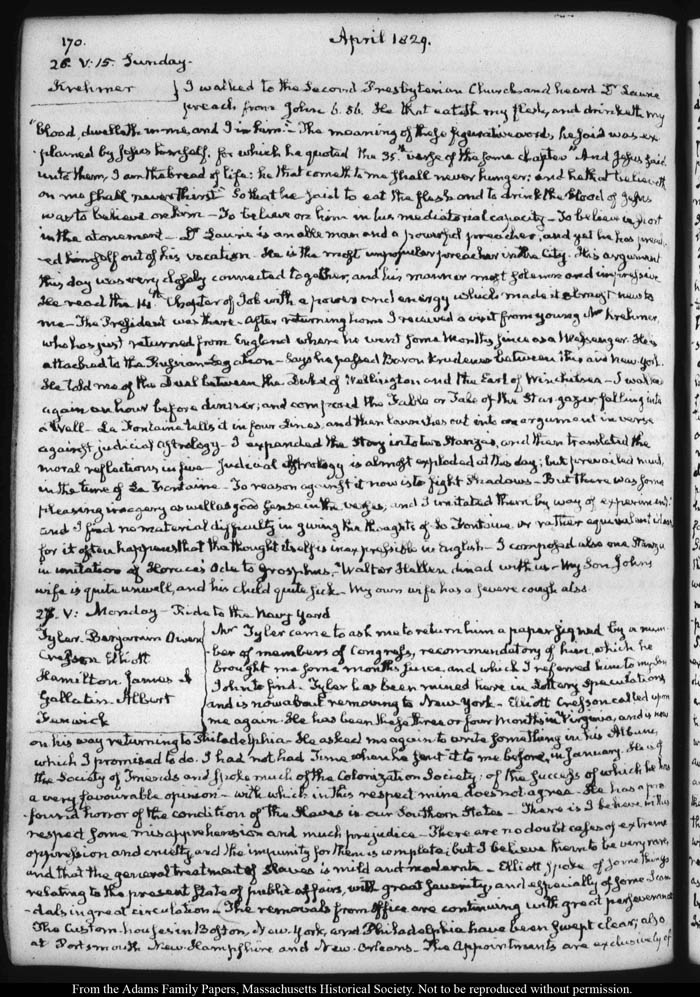 170.
April 1829.
26. V:15. Sunday.
Krehmer
I walked to the Second Presbyterian Church and heard Dr Laurie
preach from John 6.56. He that eateth my flesh, and drinketh my
"blood, dwelleth in me, and I in him." The meaning of these figurative words, he said was ex-
-plained by Jesus himself, for which he quoted the 35th verse of the same chapter "And Jesus said
unto them, I am the bread of life: he that cometh to me shall never hunger; and he that believeth
on me shall never thirst" So that he said to eat the flesh and to drink the blood of Jesus
was to believe on him — To believe on him in his mediatorial capacity — To believe in short
in the atonement — Dr Laurie is an able man and a powerful preacher, and yet he has preach-
ed himself out of his vocation. He is the most unpopular preacher in the City. His argument
this day was very closely connected together, and his manner most solemn and impressive
He read the 14th Chapter of Job with a power and energy which made it almost new to
me — The President was there — After returning home I received a visit from young Mr Krehmer,
who has just returned from England where he went some Months since as a Messenger. He is
attached to the Russian Legation — Says he passed Baron Krudener between this and New York.
He told me of the Duel between the Duke of Wellington and the Earl of Winchilsea — I walked
again an hour before dinner; and composed the Fable or Tale of the Star-gazer falling into
a Well — La Fontaine tells it in four lines, and then launches out into an argument in verse
against judicial astrology — I expanded the Story into two Stanzas, and then translated the
moral reflections in five — Judicial astrology is almost exploded at this day; but prevailed much
in the time of La Fontaine — To reason against it now is to fight Shadows — But there was some
pleasing imagery as well as good sense in the verses, and I imitated them by way of experiment
and I find no material difficulty in giving the thoughts of La Fontaine or rather equivalent ideas
for it often happens that the thought itself is inexpressible in English — I composed also one Stanza
in imitation of Horace's Ode to Grosphus. Walter Hellen dined with us — My Son John's
wife is quite unwell, and his child quite sick — My own wife has a severe cough also.
27. V: Monday — Ride to the Navy Yard
Tyler. Benjamin Owen
Cresson Elliott
Hamilton James A
Gallatin Albert
Fenwick
Mr Tyler came to ask me to return him a paper signed by a num-
-ber of members of Congress, recommendatory of him, which he
brought me some months since, and which I referred him to my Son
John to find. Tyler has been ruined here in Lottery speculations,
and is now about removing to New York — Elliott Cresson called upon
me again. He has been these three or four Months in Virginia, and is now
on his way returning to Philadelphia — He asked me again to write something in his Album,
which I promised to do. I had not had Time when he sent it to me before, in January. He is of
the Society of Friends and spoke much of the Colonization Society; of the success of which he has
a very favourable opinion — with which in this respect mine does not agree — He has a pro-
-found horror of the condition of the Slaves in our Southern States — There is I believe in this
respect some misapprehension and much prejudice — There are no doubt cases of extreme
oppression and cruelty, and the impunity for them is complete; but I believe them to be very rare,
and that the general treatment of Slaves is mild and moderate — Elliott spoke of some things
relating to the present state of public affairs, with great severity and especially of some Scan-
-dals in great circulation — The removals from office are continuing with great perseverance
The Custom-houses in Boston, New-York, and Philadelphia have been swept clear, also
at Portsmouth New-Hampshire and New-Orleans — The Appointments are exclusively of
From the Adams Family Papers, Massachusetts Historical Society. Not to be reproduced without permission.